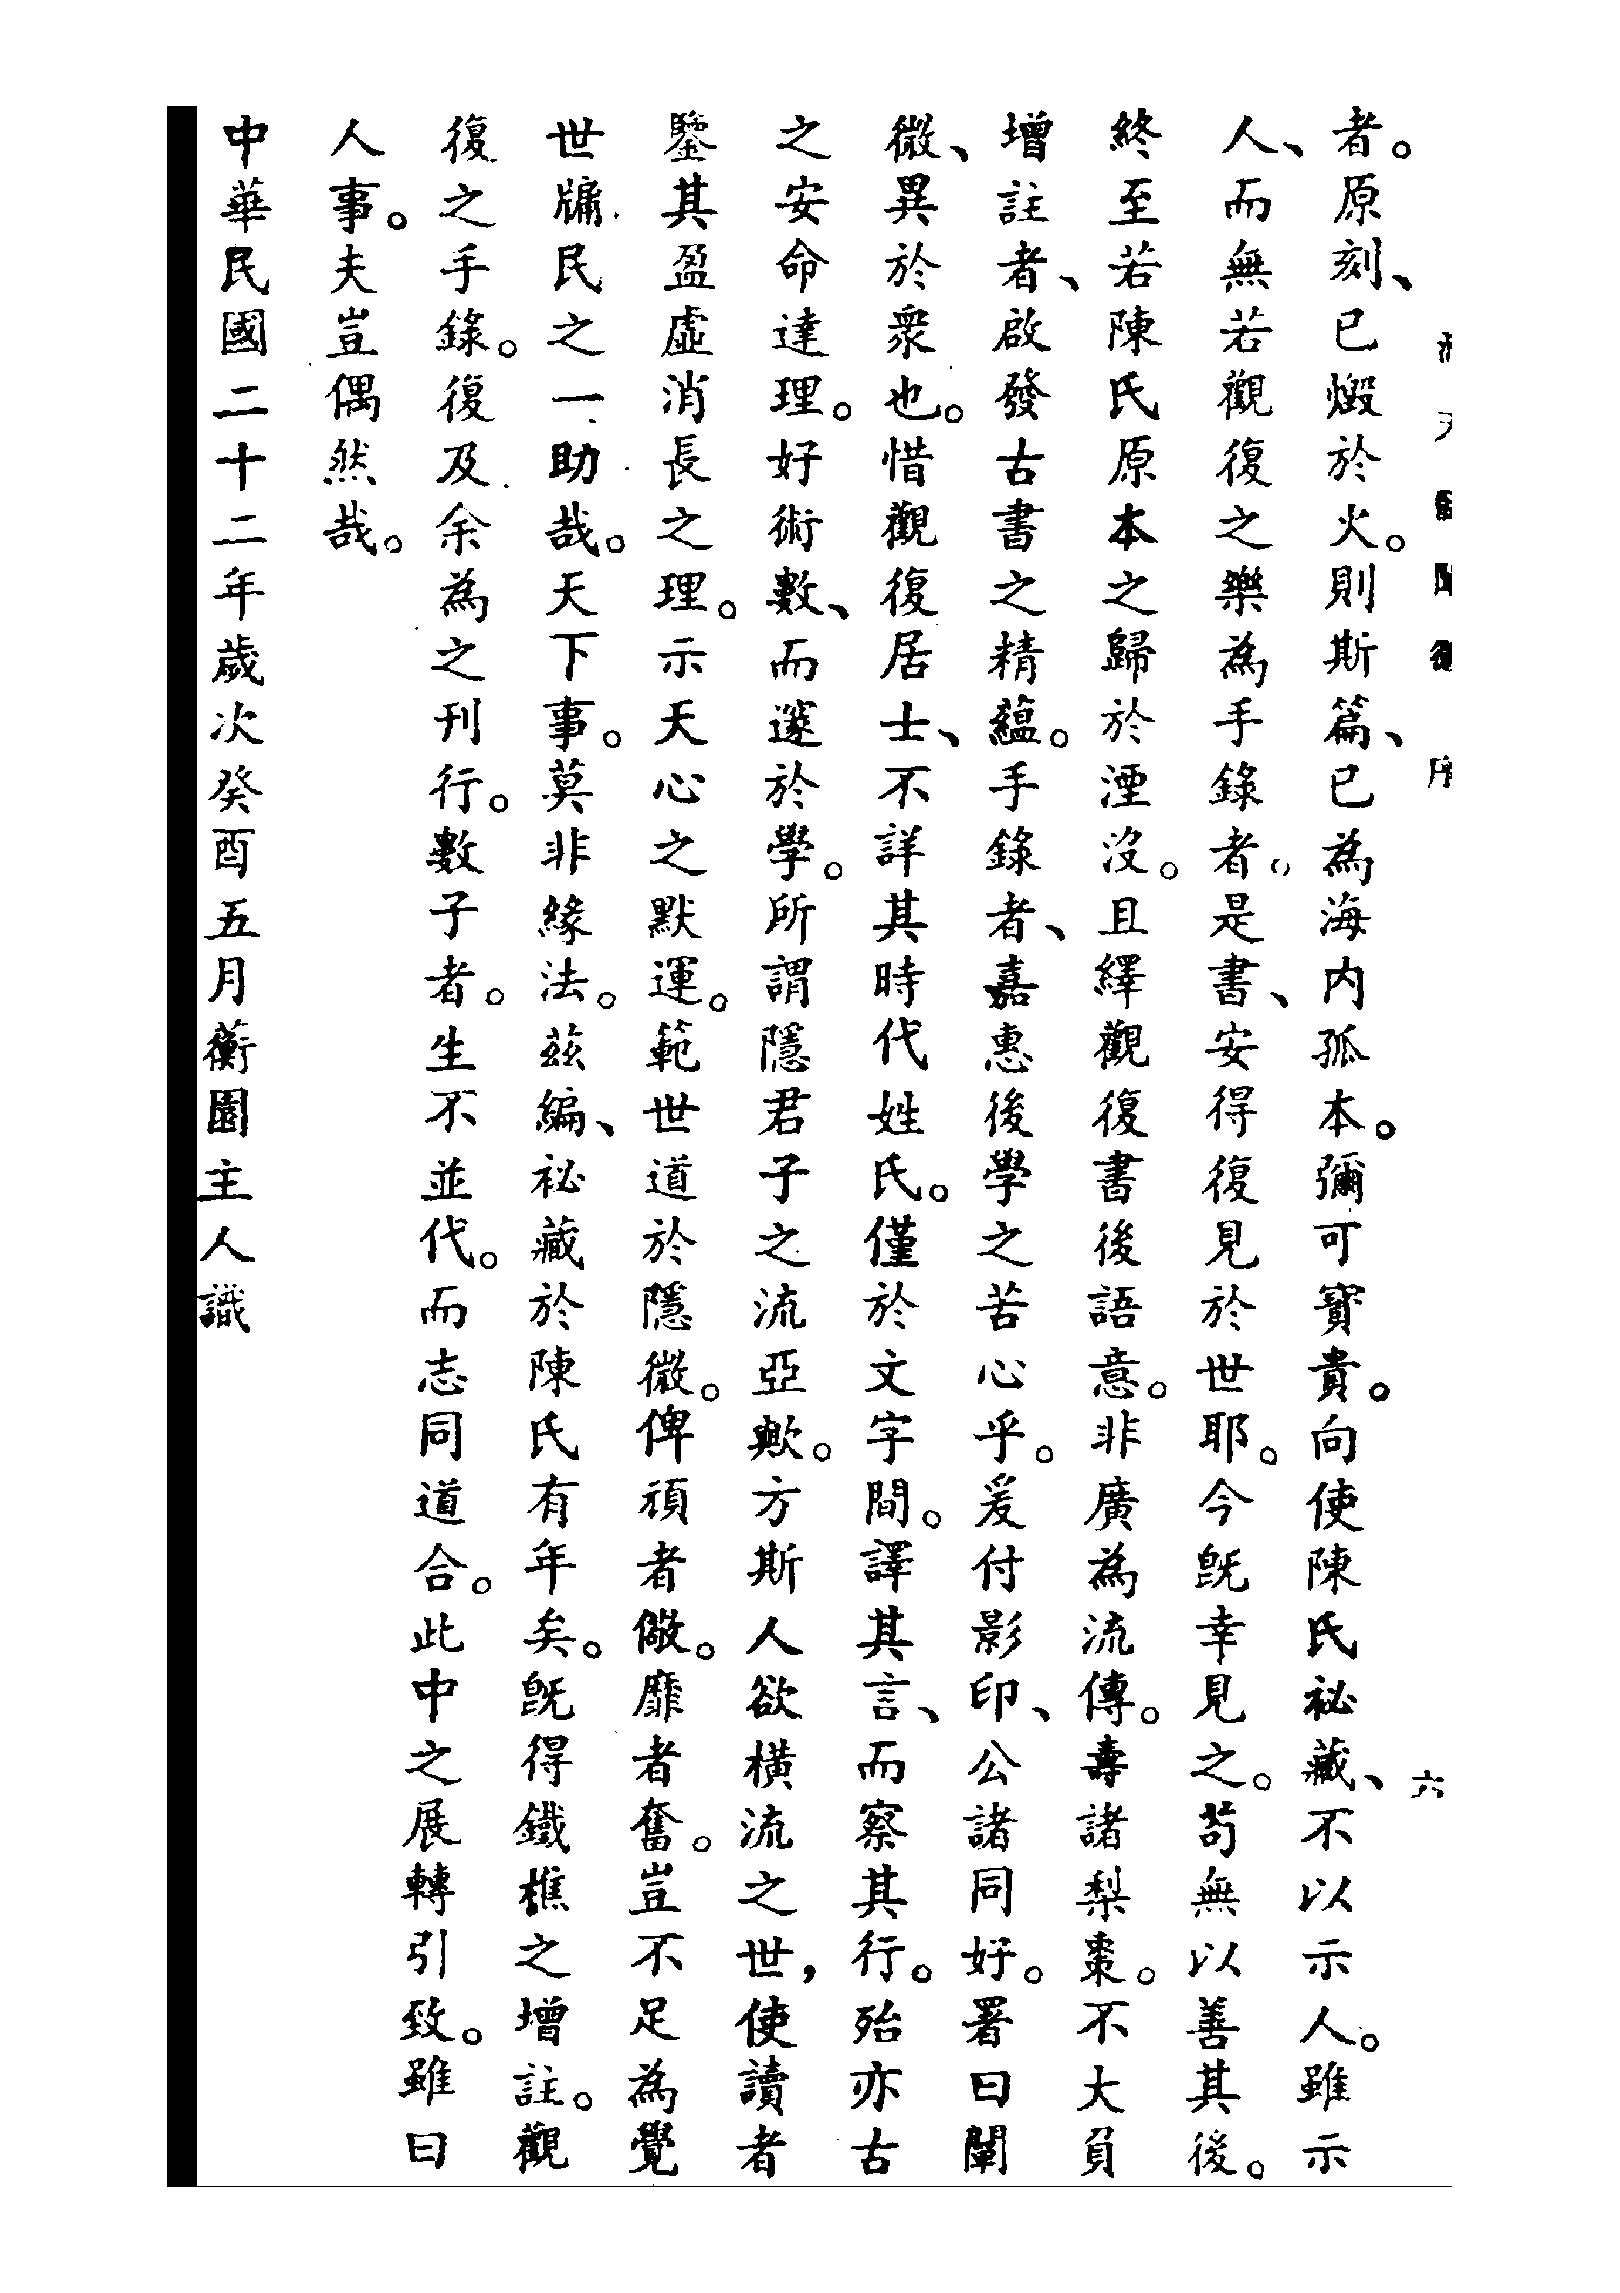 序　六
者。原刻、已燬於火。則斯篇、已為海内孤本。彌可寶貴。向使陳氏祕藏、不以示人。雖示
人、而無若觀復之樂為手錄者。是書、安得復見於世耶。今旣幸見之。苟無以善其後。
終至若陳氏原本之歸於湮沒。且繹觀復書後語意。非廣為流傳。壽諸梨棗。不大負
增註者、啟發古書之精蘊。手錄者、嘉惠後學之苦心乎。爰付影印、公諸同好。署曰闡
微、異於衆也。惜觀復居士、不詳其時代姓氏。僅於文字間。譯其言、而察其行。殆亦古
之安命達理。好術數、而邃於學。所謂隱君子之流亞歟。方斯人欲橫流之世，使讀者
鑒其盈虛消長之理。示天心之默運。範世道於隱微。俾頑者儆。靡者奮。豈不足為覺
世牖民之一助哉。天下事。莫非緣法。茲編、祕藏於陳氏有年矣。旣得鐵樵之增註。觀
復之手錄。復及余為之刊行。數子者。生不並代。而志同道合。此中之展轉引致。雖曰
人事。夫豈偶然哉。
中華民國二十二年歲次癸酉五月蘅園主人識